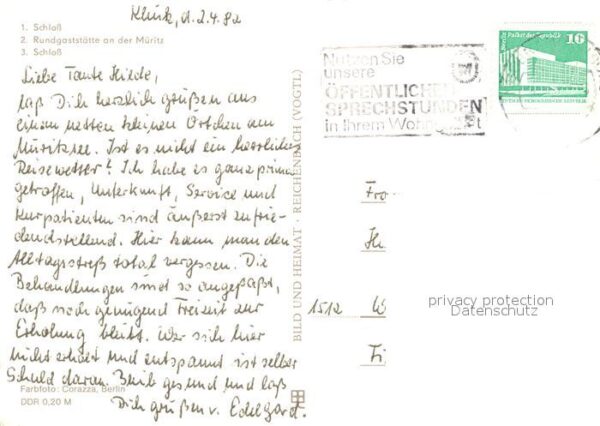 Klink, d. 2.4.82
1. Schloß
2. Rundgaststätte an der Müritz
3. Schloß
Liebe Tante Hilde,
laß Dich herzlich grüßen aus
einem netten kleinen Örtchen am
Müritzsee. Ist es nicht ein herrliches
Reisewetter! Ich habe es ganz prima
getroffen, Unterkunft, Service und
Kurpatienten sind äußerst zufrie-
denstellend. Hier kann man den
Alltagsstreß total vergessen. Die
Behandlungen sind so angepaßt,
daß noch genügend Freizeit zur
Erholung bleibt. Wer sich hier
nicht erholt und entspannt ist selber
Schuld daran. Bleib gesund und laß
Dich grüßen v. Edelgard.
Farbfoto: Corazza, Berlin
DDR 0,20 M
BILD UND HEIMAT · REICHENBACH (VOGTL)
Nutzen Sie
unsere
ÖFFENTLICHEN
SPRECHSTUNDEN
in Ihrem
10
Fro
1512
privacy protection
Datenschutz